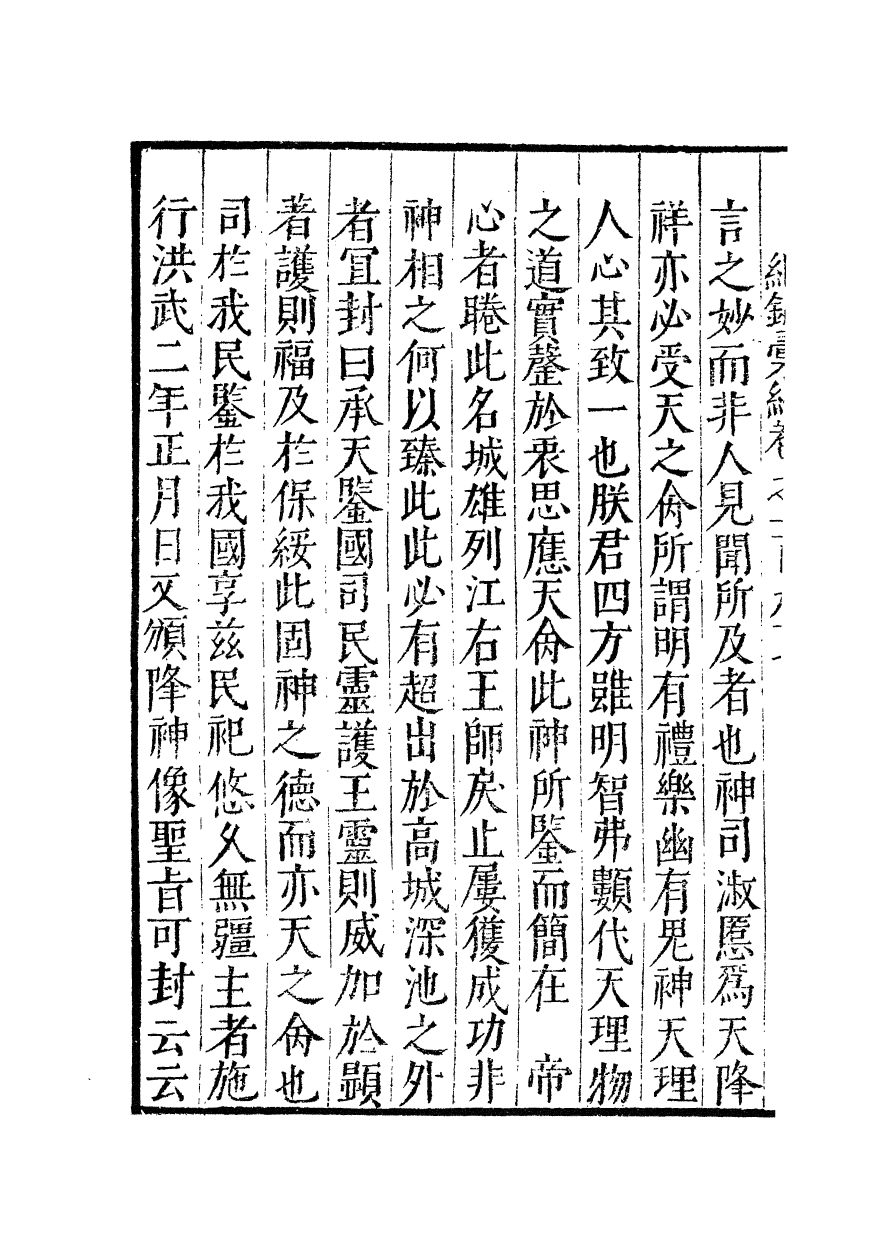 言之妙而非人見聞所及者也神司淑慝爲天降
祥亦必受天之命所謂明有禮樂幽有鬼神天理
人心其致一也朕君四方雖明智弗數代天理物
之道實罄於衷思應天命此神所鑒而簡在　帝
心者睠此名城雄列江右王師戾止屢獲成功非
神相之何以臻此此必有超出於高城深池之外
者冝封曰承天鑒國司民靈護王靈則威加於顕
著護則福及於保綏此固神之德而亦天之命也
司於我民鑒於我國享兹民祀悠久無疆主者施
行洪武二年正月日又頒降神像聖旨可封云云